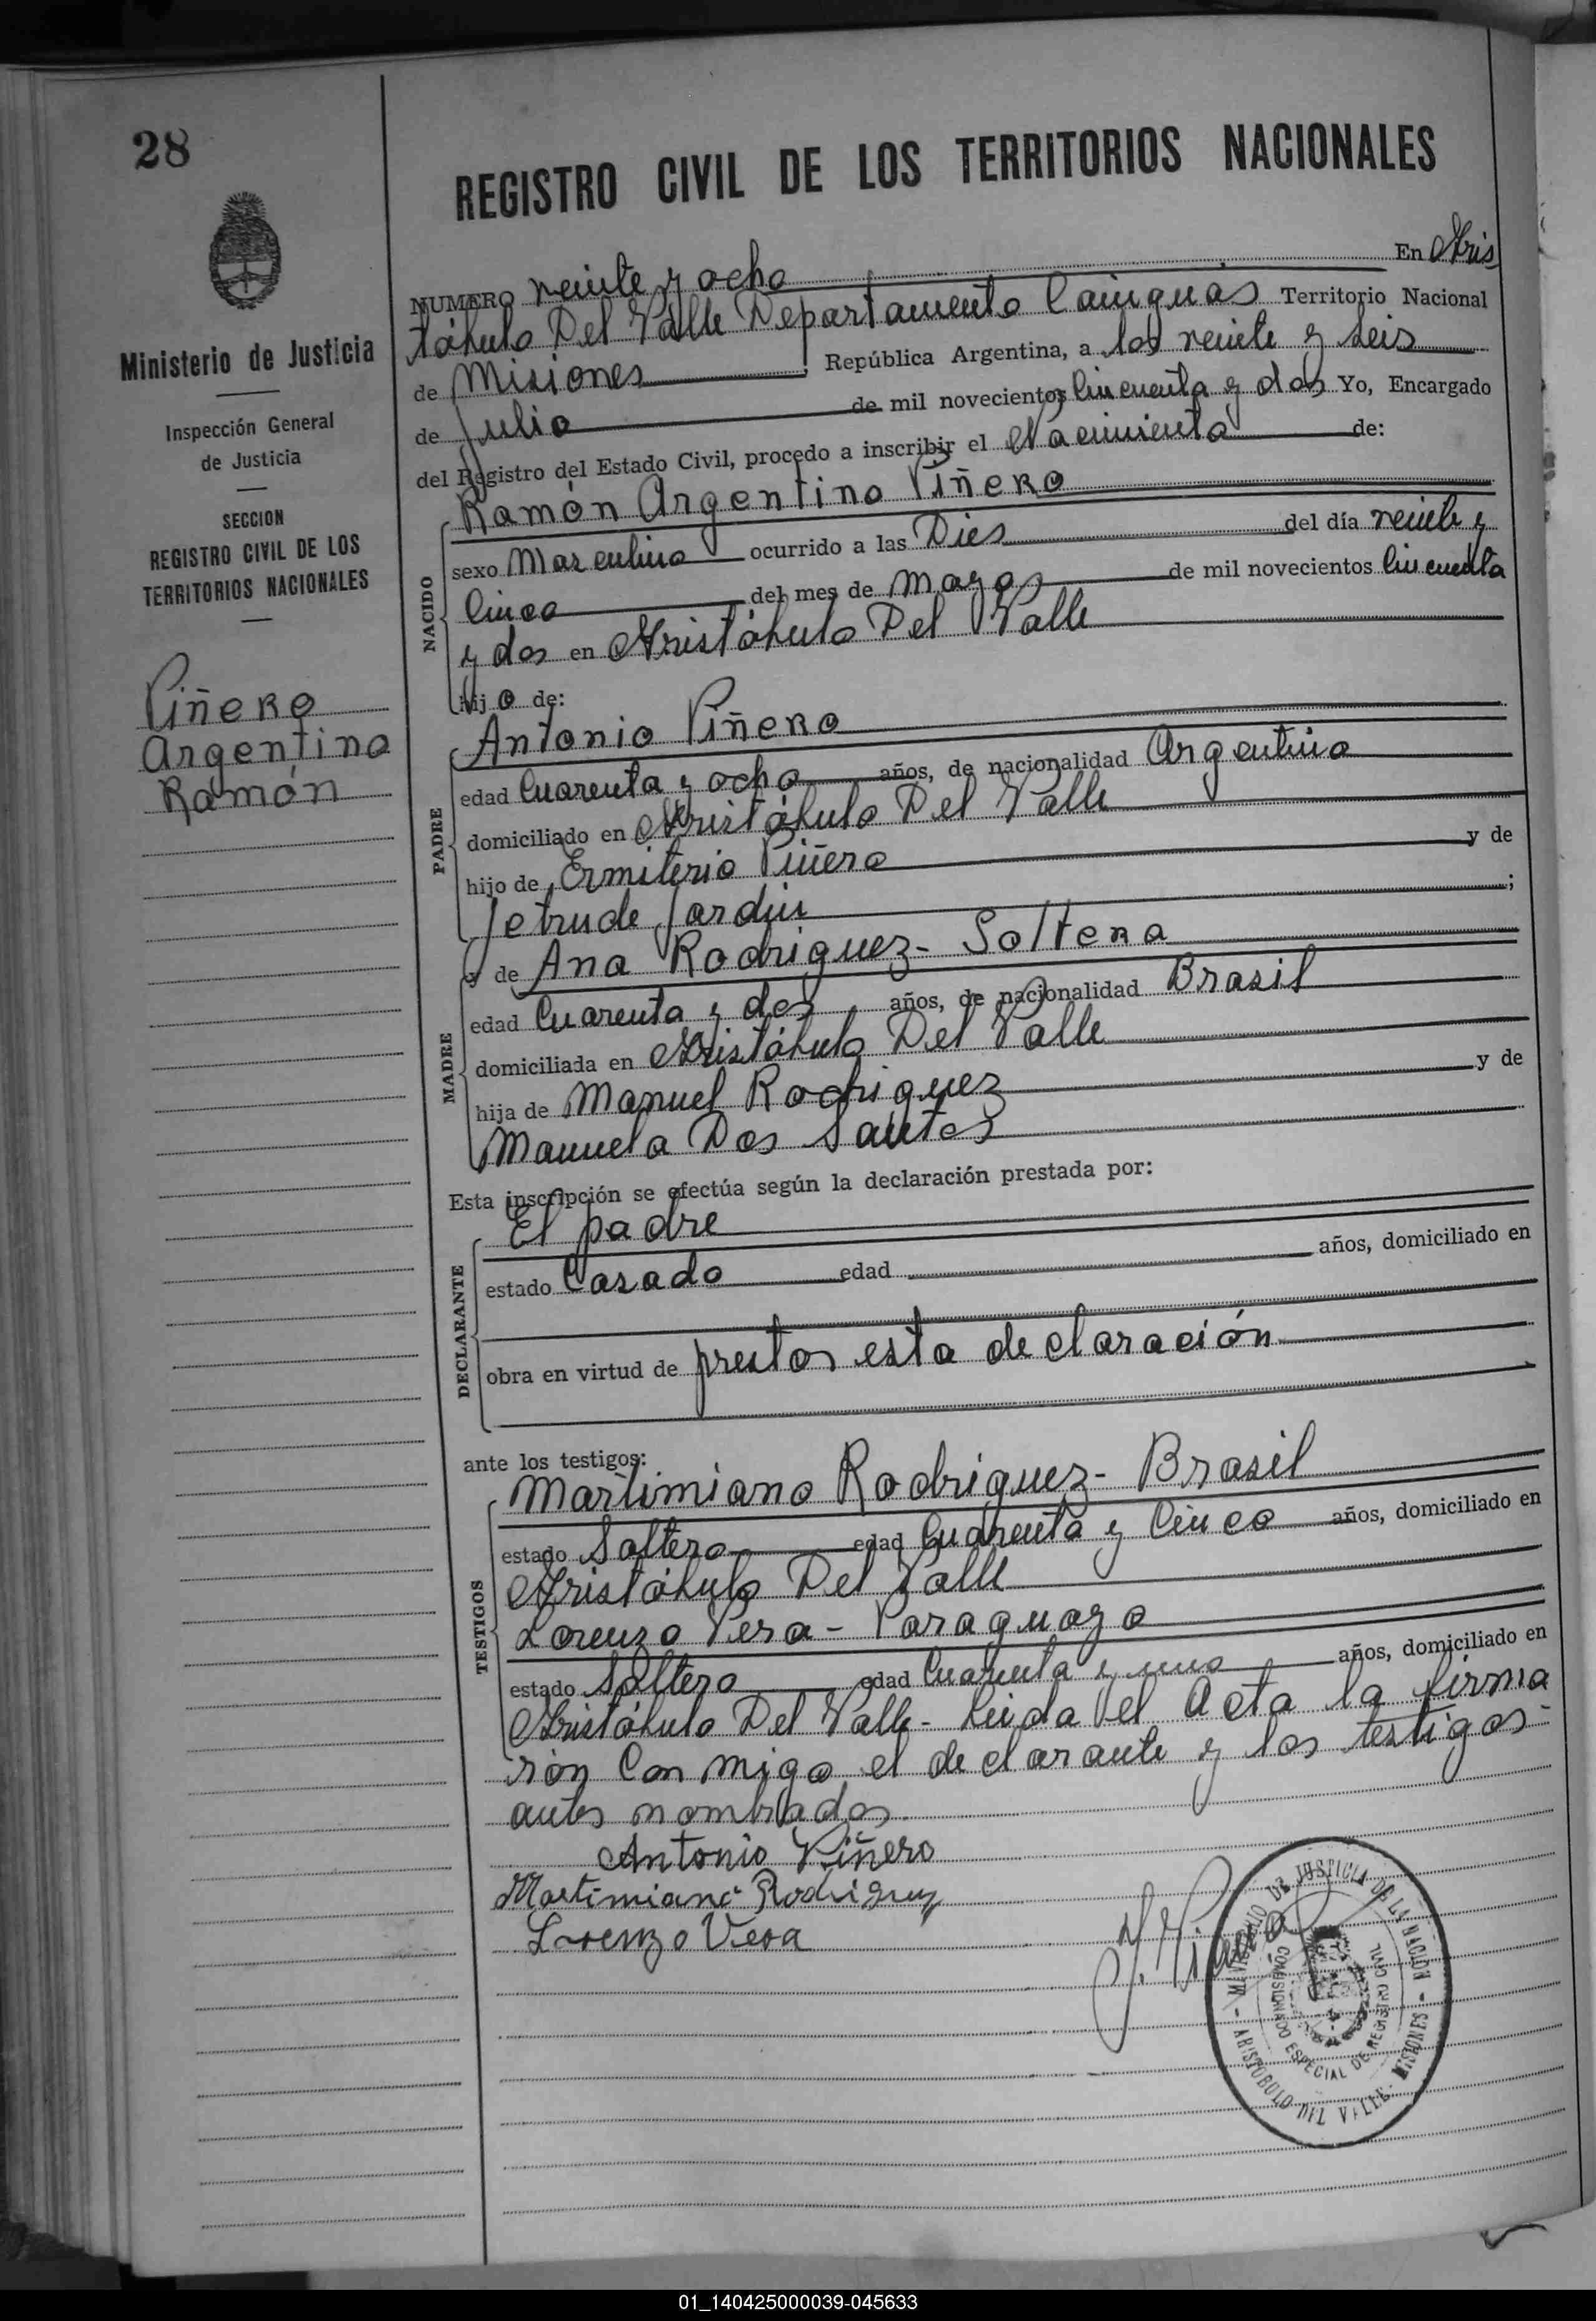 28
REGISTRO CIVIL DE LOS TERRITORIOS NACIONALES
Ministerio de Justicia
Inspección General
de Justicia
SECCION
REGISTRO CIVIL DE LOS
TERRITORIOS NACIONALES
Piñero
Argentino
Ramón
NUMERO veinte y ocho En Aris
tóbulo Del Valle Departamento Cainguás Territorio Nacional
de Misiones, República Argentina, a los veinte y seis
de Julio de mil novecientos Cincuenta y dos Yo, Encargado
del Registro del Estado Civil, procedo a inscribir el Nacimiento de:
NACIDO
Ramón Argentino Piñero
sexo Masculino ocurrido a las Dies del día veinte y
Cinco del mes de Mayo de mil novecientos Cincuenta
y dos en Aristóbulo Del Valle
hijo de:
PADRE
Antonio Piñero
edad Cuarenta y ocho años, de nacionalidad Argentino
domiciliado en Aristóbulo Del Valle
hijo de Ermiterio Piñero y de
Jetrude Jardin;
MADRE
y de Ana Rodriguez - Soltera
edad Cuarenta y dos años, de nacionalidad Brasil
domiciliada en Aristóbulo Del Valle
hija de Manuel Rodriguez y de
Manuela Dos Santos
Esta inscripción se efectúa según la declaración prestada por:
DECLARANTE
El padre
estado Casado edad años, domiciliado en
obra en virtud de prestos esta declaración
ante los testigos:
TESTIGOS
Martimiano Rodriguez - Brasil
estado Soltero edad Cuarenta y Cinco años, domiciliado en
Aristóbulo Del Valle
Lorenzo Vera - Paraguayo
estado Soltero edad Cuarenta y uno años, domiciliado en
Aristóbulo Del Valle - Leida el Acta la firma
ron Con migo el declarante y los testigos -
antes nombrados.
Antonio Piñero
Martimiano Rodriguez
Lorenzo Vera
MINISTERIO DE JUSTICIA DE LA NACION
COMISIONADO ESPECIAL DE REGISTRO CIVIL
- ARISTOBULO DEL VALLE - MISIONES -
01_140425000039-045633